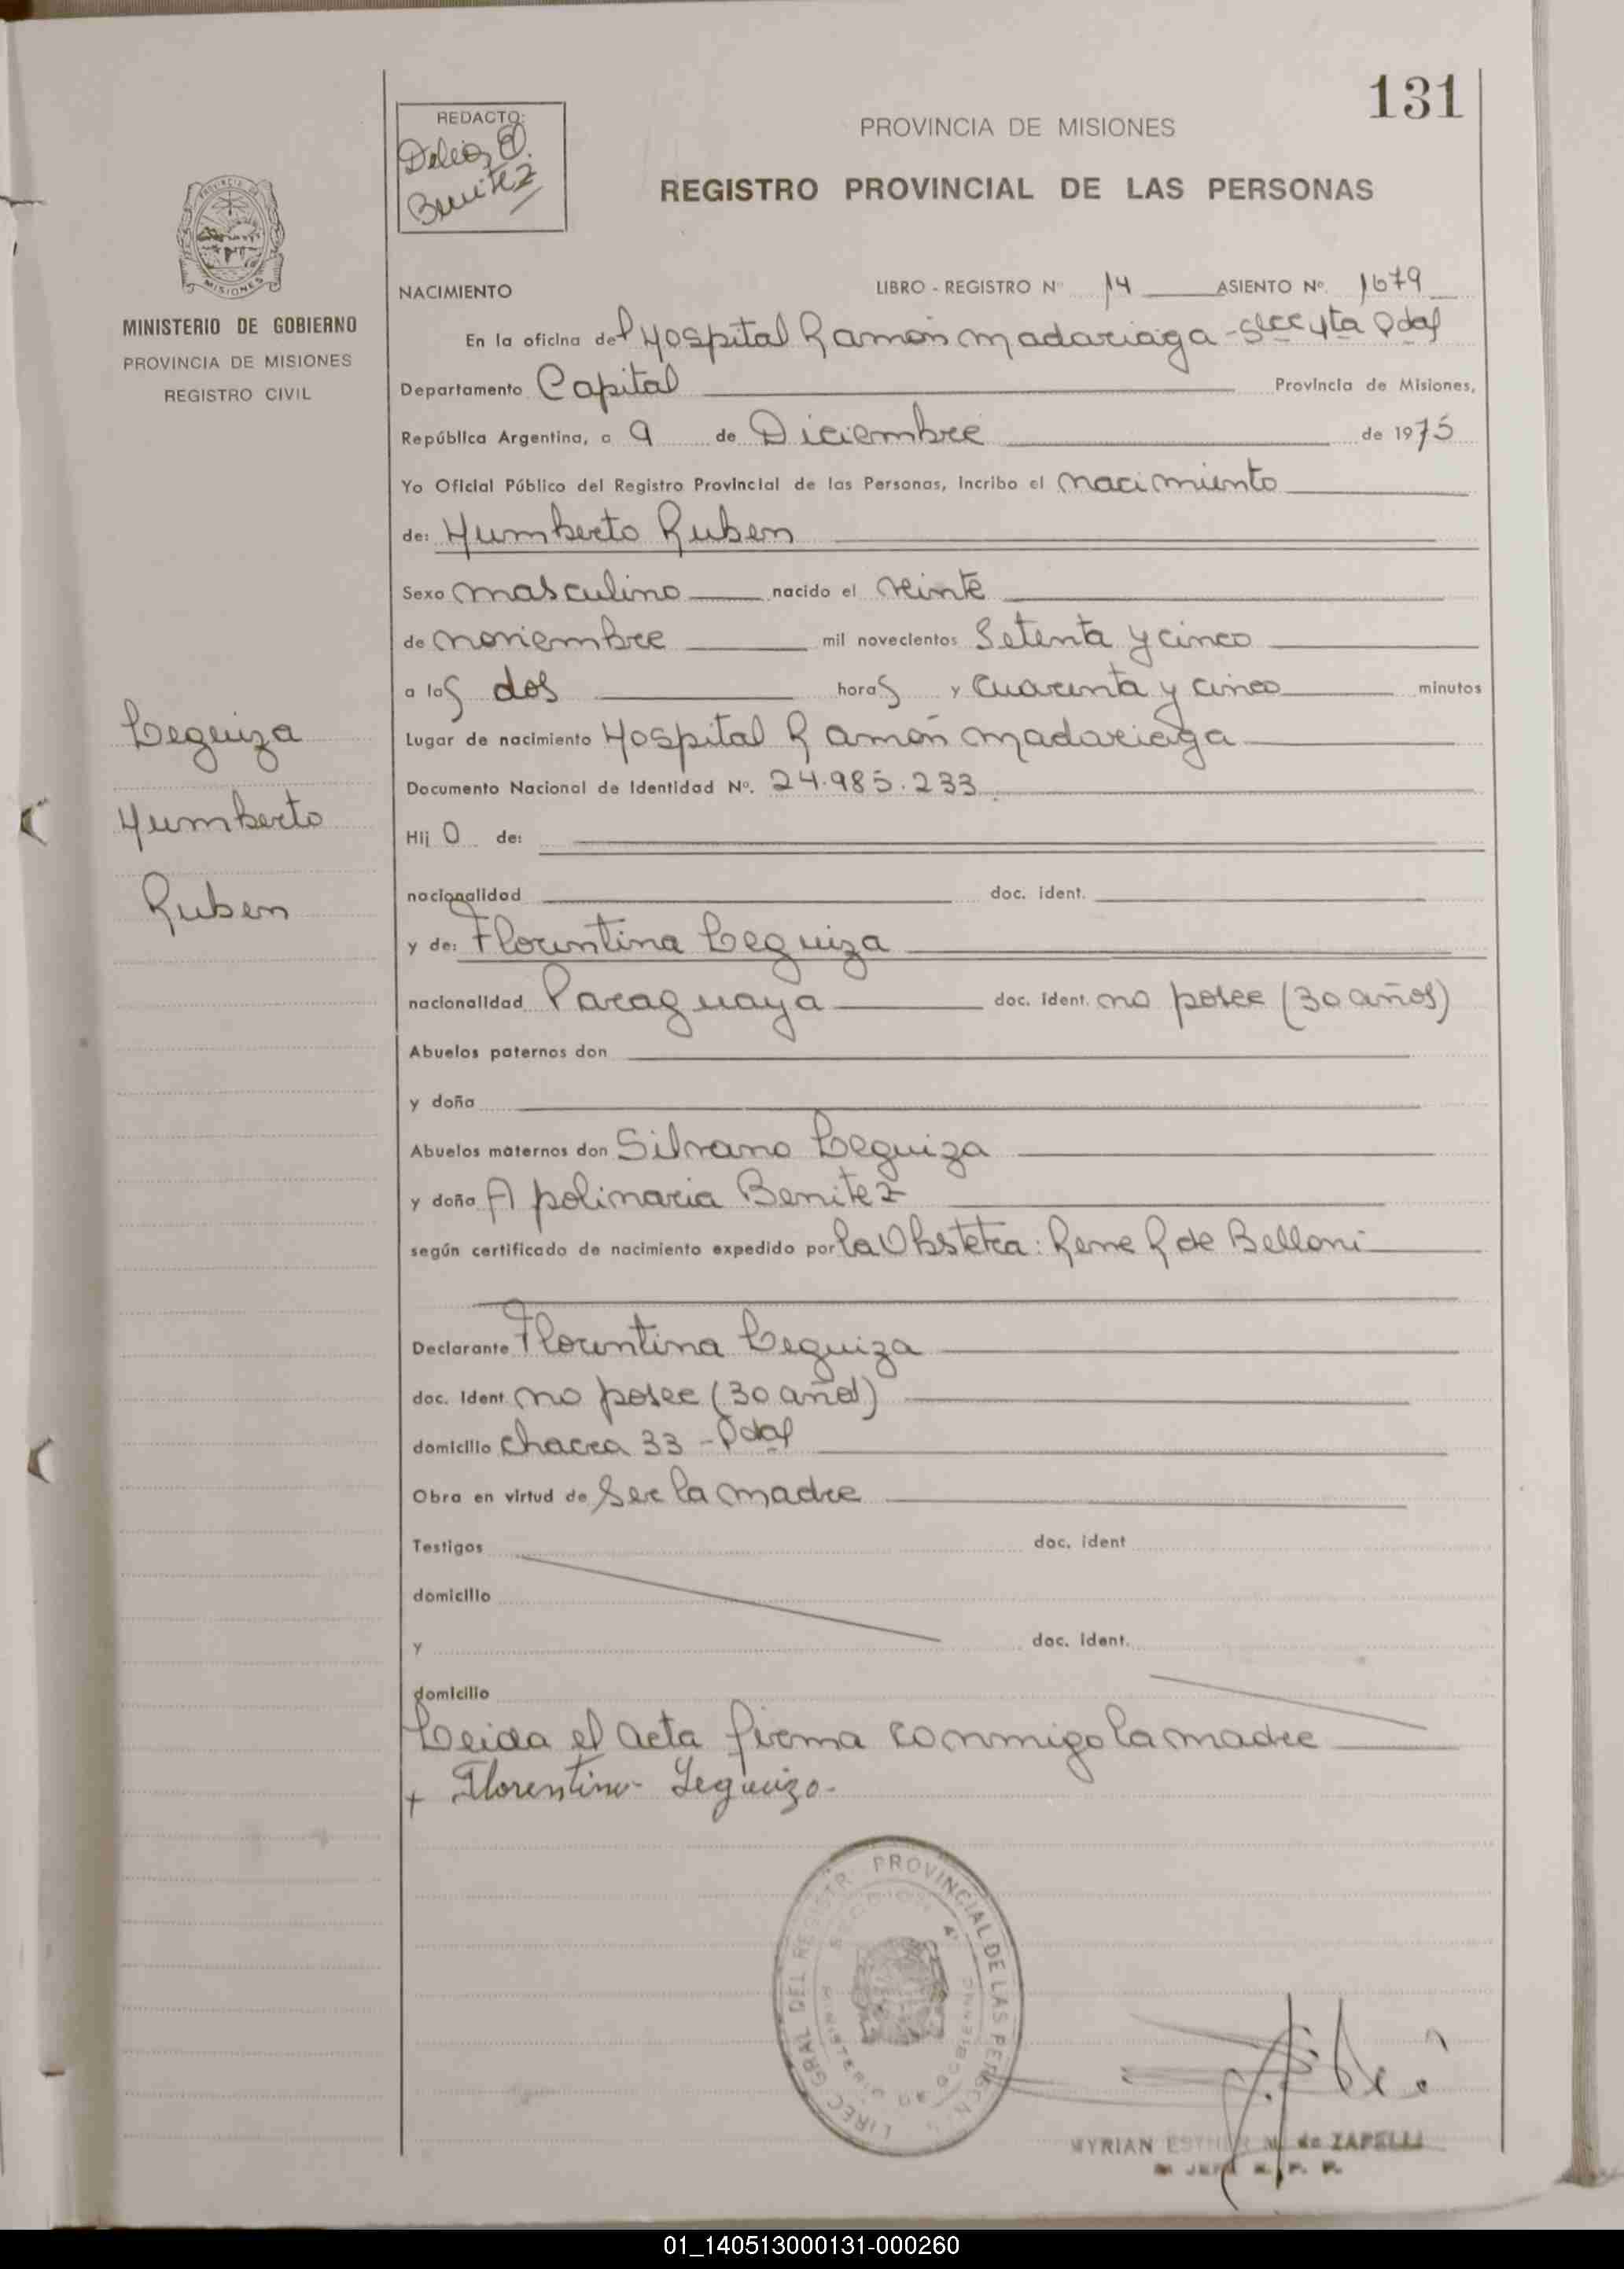 131
REDACTO:
Delia E.
Benitez
PROVINCIA DE MISIONES
REGISTRO PROVINCIAL DE LAS PERSONAS
MISIONES
MINISTERIO DE GOBIERNO
PROVINCIA DE MISIONES
REGISTRO CIVIL
NACIMIENTO LIBRO - REGISTRO Nº 14 ASIENTO Nº. 1679
En la oficina del Hospital Ramón Madariaga - Secc 4ta Pdas
Departamento Capital Provincia de Misiones,
República Argentina, a 9 de Diciembre de 1975
Yo Oficial Público del Registro Provincial de las Personas, incribo el nacimiento
de: Humberto Ruben
Sexo masculino nacido el veinte
de noviembre mil novecientos Setenta y cinco
a las dos horas y cuarenta y cinco minutos
Lugar de nacimiento Hospital Ramón Madariaga
Documento Nacional de Identidad Nº. 24.985.233
Hij o de:
nacionalidad doc. ident.
y de: Florentina Leguiza
nacionalidad Paraguaya doc. ident. no posee (30 años)
Abuelos paternos don
y doña
Abuelos maternos don Silvano Leguiza
y doña Apolinaria Benitez
según certificado de nacimiento expedido por la Obstetra: Rene R de Belloni
Declarante Florentina Leguiza
doc. Ident. no posee (30 años)
domicilio chacra 33 - Pdas
Obra en virtud de ser la madre
Testigos doc. ident
domicilio
y doc. ident.
domicilio
Leida el acta firma conmigo la madre
+ Florentina Leguiza
Leguiza
Humberto
Ruben
DIREC GRAL DEL REGISTR. PROVINCIAL DE LAS PERSON.
SECCION 4ª
MINISTERIO DE GOBIERNO
MYRIAN ESTHER M. de ZAPELLI
JEFE R. P. P.
01_140513000131-000260